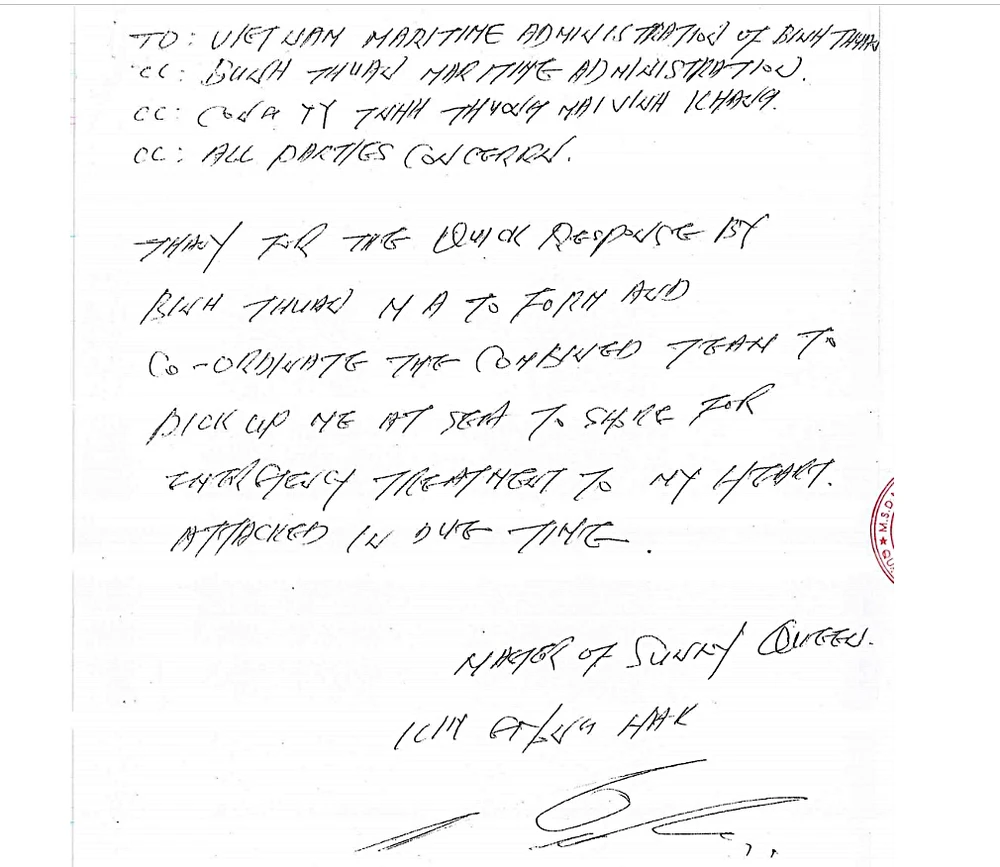 TO: VIETNAM MARITIME ADMINISTRATION OF BINH THUAN
CC: BINH THUAN MARITIME ADMINISTRATION.
CC: CONG TY TNHH THUONG MAI VINH KHANG.
CC: ALL PARTIES CONCERRN.
THANY FOR THE QUICK RESPONSE BY
BINH THUAN M A TO FORM AND
CO-ORDINATE THE COMBINED TEAM TO
PICK UP ME AT SEA TO SHORE FOR
EMERGENCY TREATMENT TO MY HEART.
ATTACKED IN DUE TIME.
MASTER OF SUNNY QUEEN.
KIM HAK
★ M.S.